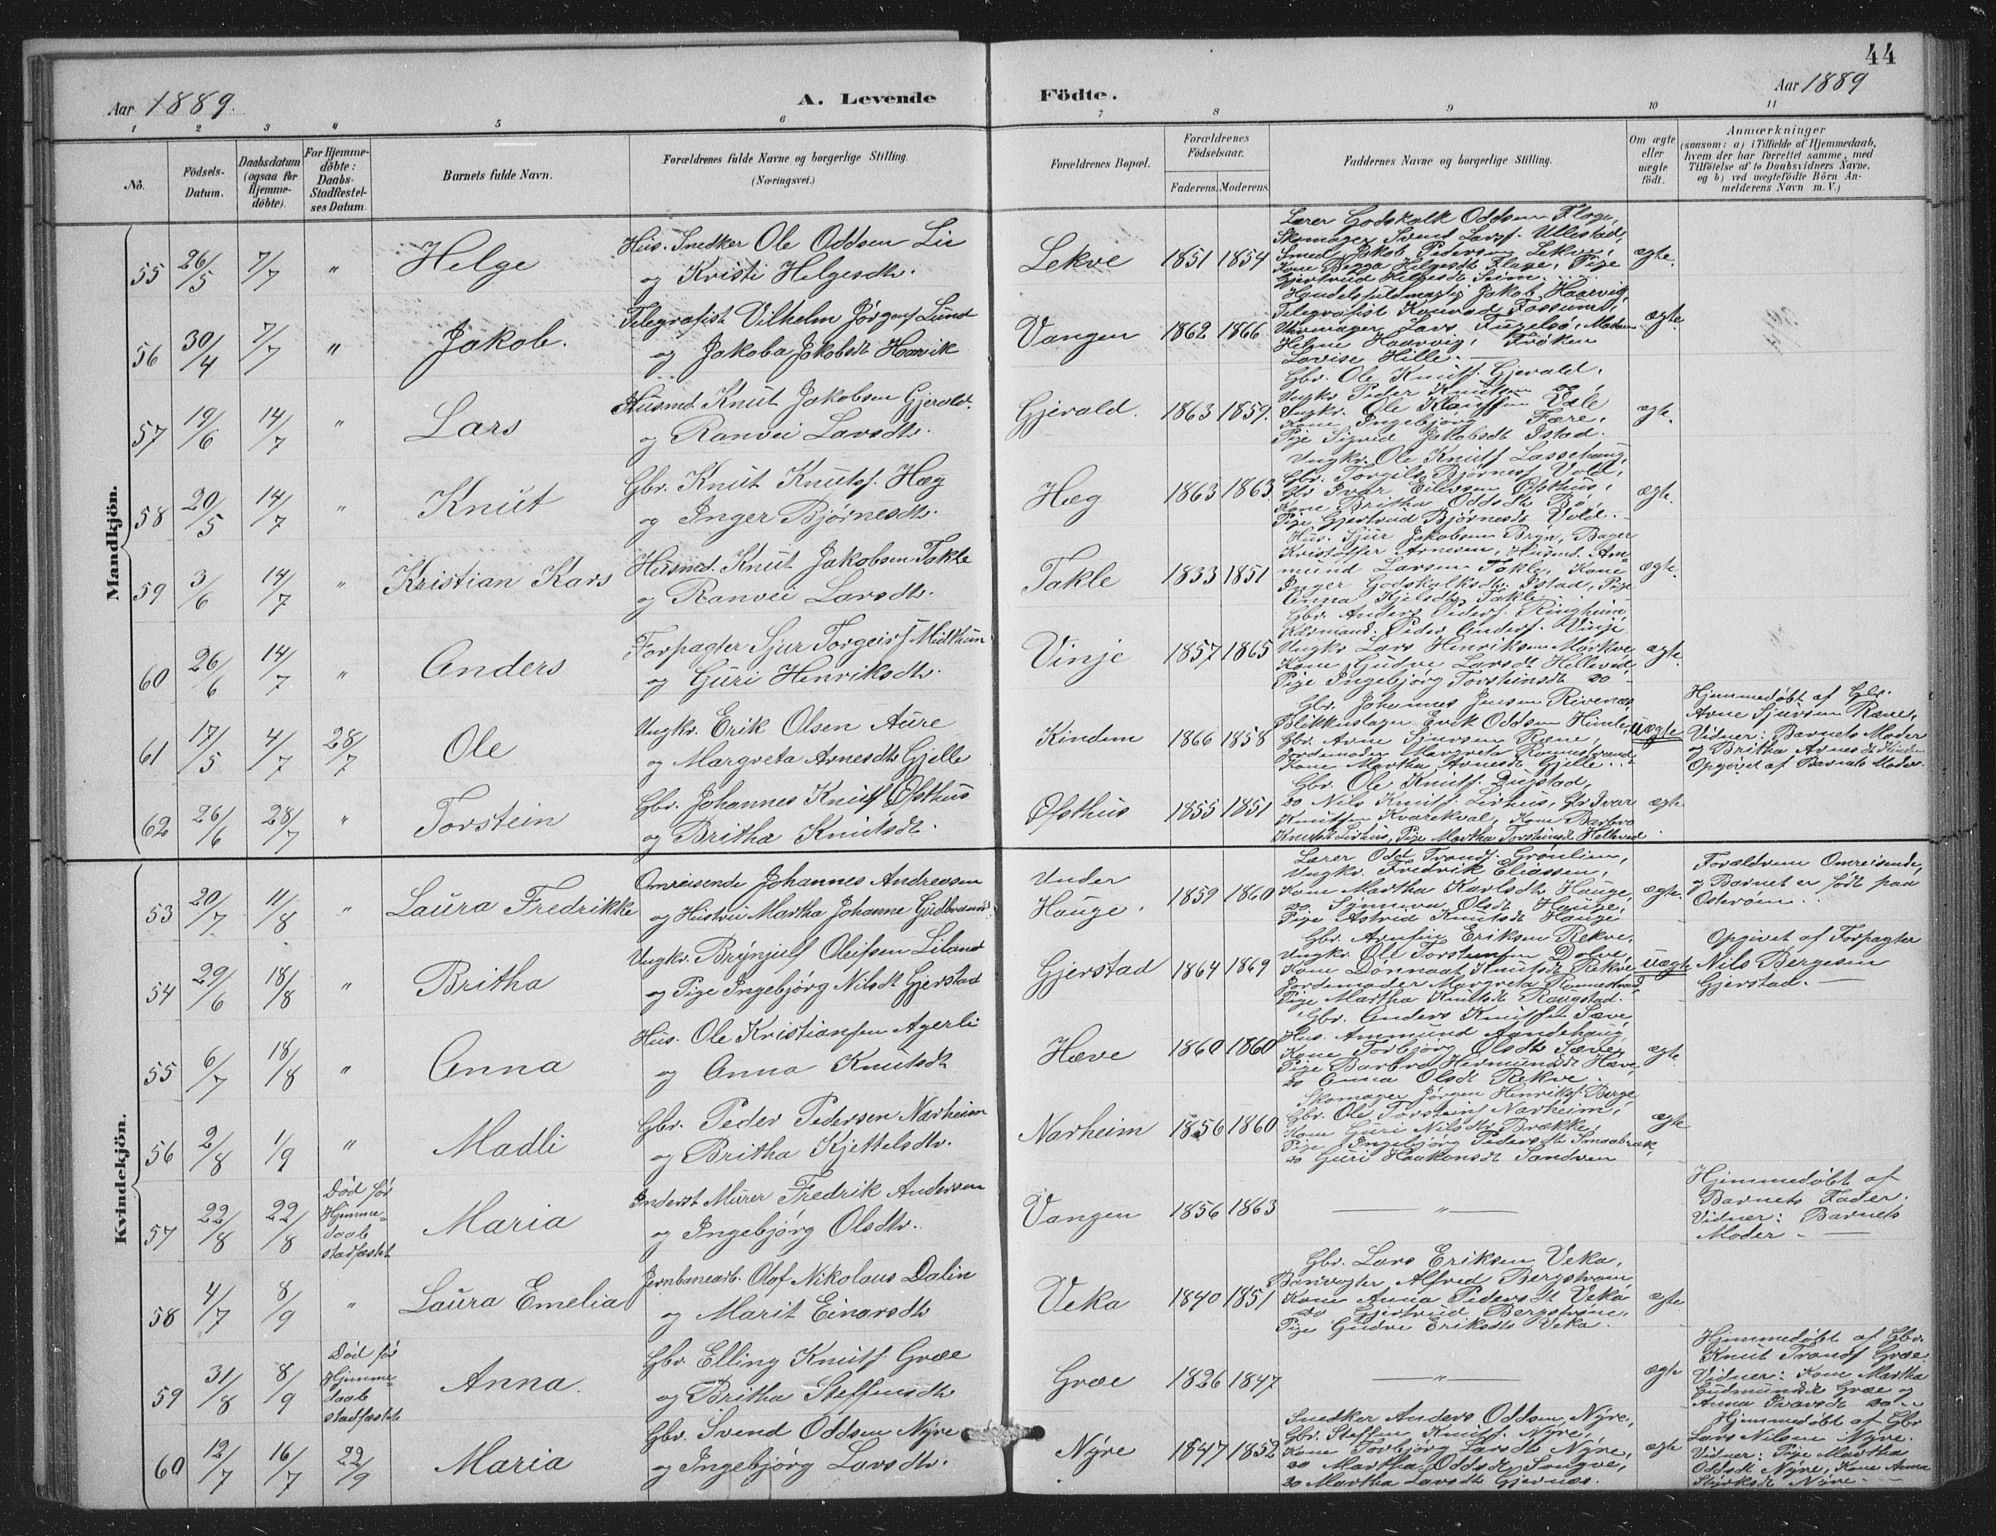 44
Aar 1889. A. Levende Födte. Aar 1889
1 2 3 4 5 6 7 8 9 10 11
No. Födsels-Datum. Daabsdatum (ogsaa for Hjemmedöbte). For Hjemmedöbte: Daabs-Stadfæstelses Datum. Barnets fulde Navn. Forældrenes fulde Navne og borgerlige Stilling. (Næringsvei.) Forældrenes Bopæl. Forældrenes Födselsaar. Faderens. Moderens. Faddernes Navne og borgerlige Stilling. Om ægte eller uægte födt. Anmærkninger (saasom: a) i Tilfælde af Hjemmedaab, hvem der har forrettet samme, med Tilföielse af to Daabsvidners Navne. og b) ved uægtefödte Börn Anmelderens Navn m. V.)
Mandkjön.
55 26/5 7/7 " Helge Hus. Snedker Ole Oddsen Lie
og Kristi Helgesdtr. Lekve 1851 1854 Lærer Godskalk Oddsen Flage,
Skomager Svend Larsf. Ullestad,
Smed Jakob Pedersen Lekve,
Kone Brygga Helgesdt Flage, Pige
Gjertrud Helgesdt Seim. ægte.
56 30/4 7/7 " Jakob. Telegrafist Vilhelm Jørgenf Lund
og Jakoba Jakobsdt Haarvik Vangen 1862 1866 Handelsfuldmægtig Jakob Haarvig,
Telegrafist Konrad Fossum,
Uhrmager Lars Fugelsø, Madam
Helene Haarvig, Frøken
Lovise Hille. ægte
57 19/6 14/7 " Lars Husmd. Knut Jakobsen Gjerald.
og Ranvei Larsdtr. Gjerald. 1863 1859. Gbr. Ole Knutf. Gjerald,
Ungkr. Peder Knutsen do
Ungkr. Ole Knutsen Væle
Kone Ingebjørg Fære,
Pige Sigrid Jakobsdt Istad. ægte.
58 20/5 14/7 " Knut Gbr. Knut Knutsf. Hæg
og Inger Bjørnesdtr. Hæg 1863 1863 Ungkr. Ole Knutf Lassehaug,
Gbr. Torgils Bjørnesf Vold,
Gbr Ivar Eilevsen Østhus,
Kone Britha Oddsdt Bø,
Pige Gjertrud Bjørnesdt Vold. ægte.
59 3/6 14/7 " Kristian Kars Husmd. Knut Jakobsen Takle
og Ranvei Larsdtr. Takle 1833 1851 Hus. Sjur Jakobsen Bryn, Bager
Kristoffer Arnesen, Husmd. Am-
mund Larsen Takle, Kone
Inger Godskalksdtr Istad, Pige
Anna Kjelsdt Takle. ægte.
60 26/6 14/7 " Anders Forpagter Sjur Torgeirf Midthun
og Guri Henriksdtr. Vinje 1857 1865 Gbr. Anders Pedersf Ringheim,
Kårmand. Peder Andersf. Vinje
Ungkr Lars Henriksen Mørkve,
Kone Gudve Larsdt Helleved,
Pige Ingebjørg Torsteinsdt do ægte.
61 17/5 4/7 28/7 Ole Ungkr. Erik Olsen Aure
og Margreta Arnesdtr Gjelle Kindem 1866 1858 Gbr. Johannes Jensen Rivenæs,
Blikkenslager Erik Oddsen Himle,
Gbr. Arne Sjursen Ræne,
Jordemoder Margreta Rannestrand
Kone Martha Arnesdt Gjelle. uægte Hjemmedøbt af Gbr.
Arne Sjursen Ræne,
Vidner: Barnets Moder
og Britha Arnesdt Kindem
Opgivet af Barnets Moder.
62 26/6 28/7 " Torstein Gbr. Johannes Knutf Østhus
og Britha Knutsdt. Østhus 1855 1851 Gbr. Ole Knutf. Dugstad,
do Nils Knutf. Lirhus, Gbr Ivar
Knutsen Kvarekval, Kone Barbro
Knutsdt Lirhus, Pige Martha Torsteinsdt Helleved. ægte
Kvindekjön.
53 20/7 11/8 " Laura Fredrikke Omreisende Johannes Andreasen
og Hustru Martha Johanne Gudbrandsd. Under
Hauge. 1859 1860 Lærer Odd Trondf. Grønlien,
Ungkr. Fredrik Eliassen,
Kone Martha Karlsdtr Hauge,
do Synneva Olsdt Hauge,
Pige Astrid Knutsdt Hauge ægte. Forældrene Omreisende,
og Barnet er født paa
Osterøen.
54 29/6 18/8 " Britha Ungkr. Brynjulf Oleifsen Liland
og Pige Ingebjørg Nilsdt Gjerstad Gjerstad 1864 1869 Gbr. Arnfin Eriksen Rekve,
Ungkr. Ole Torsteinsen Dolve,
Kone Donnaat Knutsdt Rekve
Jordemoder Margreta Rannestrand,
Pige Martha Knutsdt Raugstad. uægte Opgivet af Forpagter
Nils Bergesen
Gjerstad.
55 6/7 18/8 " Anna Hus. Ole Kristiansen Agerli
og Anna Knutsdt Hæve 1860 1860 Gbr. Anders Knutsen Sæve,
Hus. Ammund Aandehaug,
Kone Torbjørg Olsdtr Sæve,
Pige Barbro Hermundsdt Hæve
do Anna Olsdt Rekve. ægte
56 2/8 1/9 " Madli Gbr. Peder Pedersen Narheim
og Britha Kjettelsdtr. Narheim 1856 1860 Skomager Jørgen Henriksf. Berge,
Gbr. Ole Torsteinf Narheim,
Kone Guri Nilsdtr Brække,
Pige Ingebjørg Pedersdt Smaabræk,
do Guri Haakonsdt Sandven ægte
57 22/8 22/8 Død før
Hjemme-
daab
stadfæstet Maria Inderst Murer Fredrik Andersen
og Ingebjørg Olsdtr. Vangen 1856 1863 — " — Hjemmedøbt af
Barnets Fader.
Vidner: Barnets
Moder.
58 4/7 8/9 " Laura Emelia Jernbanearb. Olof Nikolaus Dalin
og Marit Einarsdtr Veka 1840 1851 Gbr. Lars Eriksen Veka,
Banvogter Alfred Bergstrøm,
Kone Anna Pedersdt Veka
do Gjertrud Bergstrøm,
Pige Gudve Eriksdt Veka. ægte
59 31/8 8/9 Død før
Hjemme-
daab
stadfæstet Anna. Gbr. Elling Knutf. Græe
og Britha Steffensdtr Græe 1826 1847 — " — ægte Hjemmedøbt af Gbr.
Knut Trondf Græe.
Vidner: Kone Martha
Gudmundsdt Græe og
Anna Ivarsdt do.
60 12/7 16/7 22/9 Maria Gbr. Svend Oddsen Nyre
og Ingebjørg Larsdtr. Nyre 1847 1852 Snedker Anders Oddsen Nyre,
Gbr. Steffen Knutf. Nyre,
Kone Torbjørg Larsdtr Nyre,
do Martha Oddsdt Sungve,
do Martha Larsdt Gjernæs. ægte Hjemmedøbt af Gbr
Lars Nilsen Nyre.
Vidner: Pige Martha
Oddsdt Nyre, Kone Anna
Styrksdt Nyre